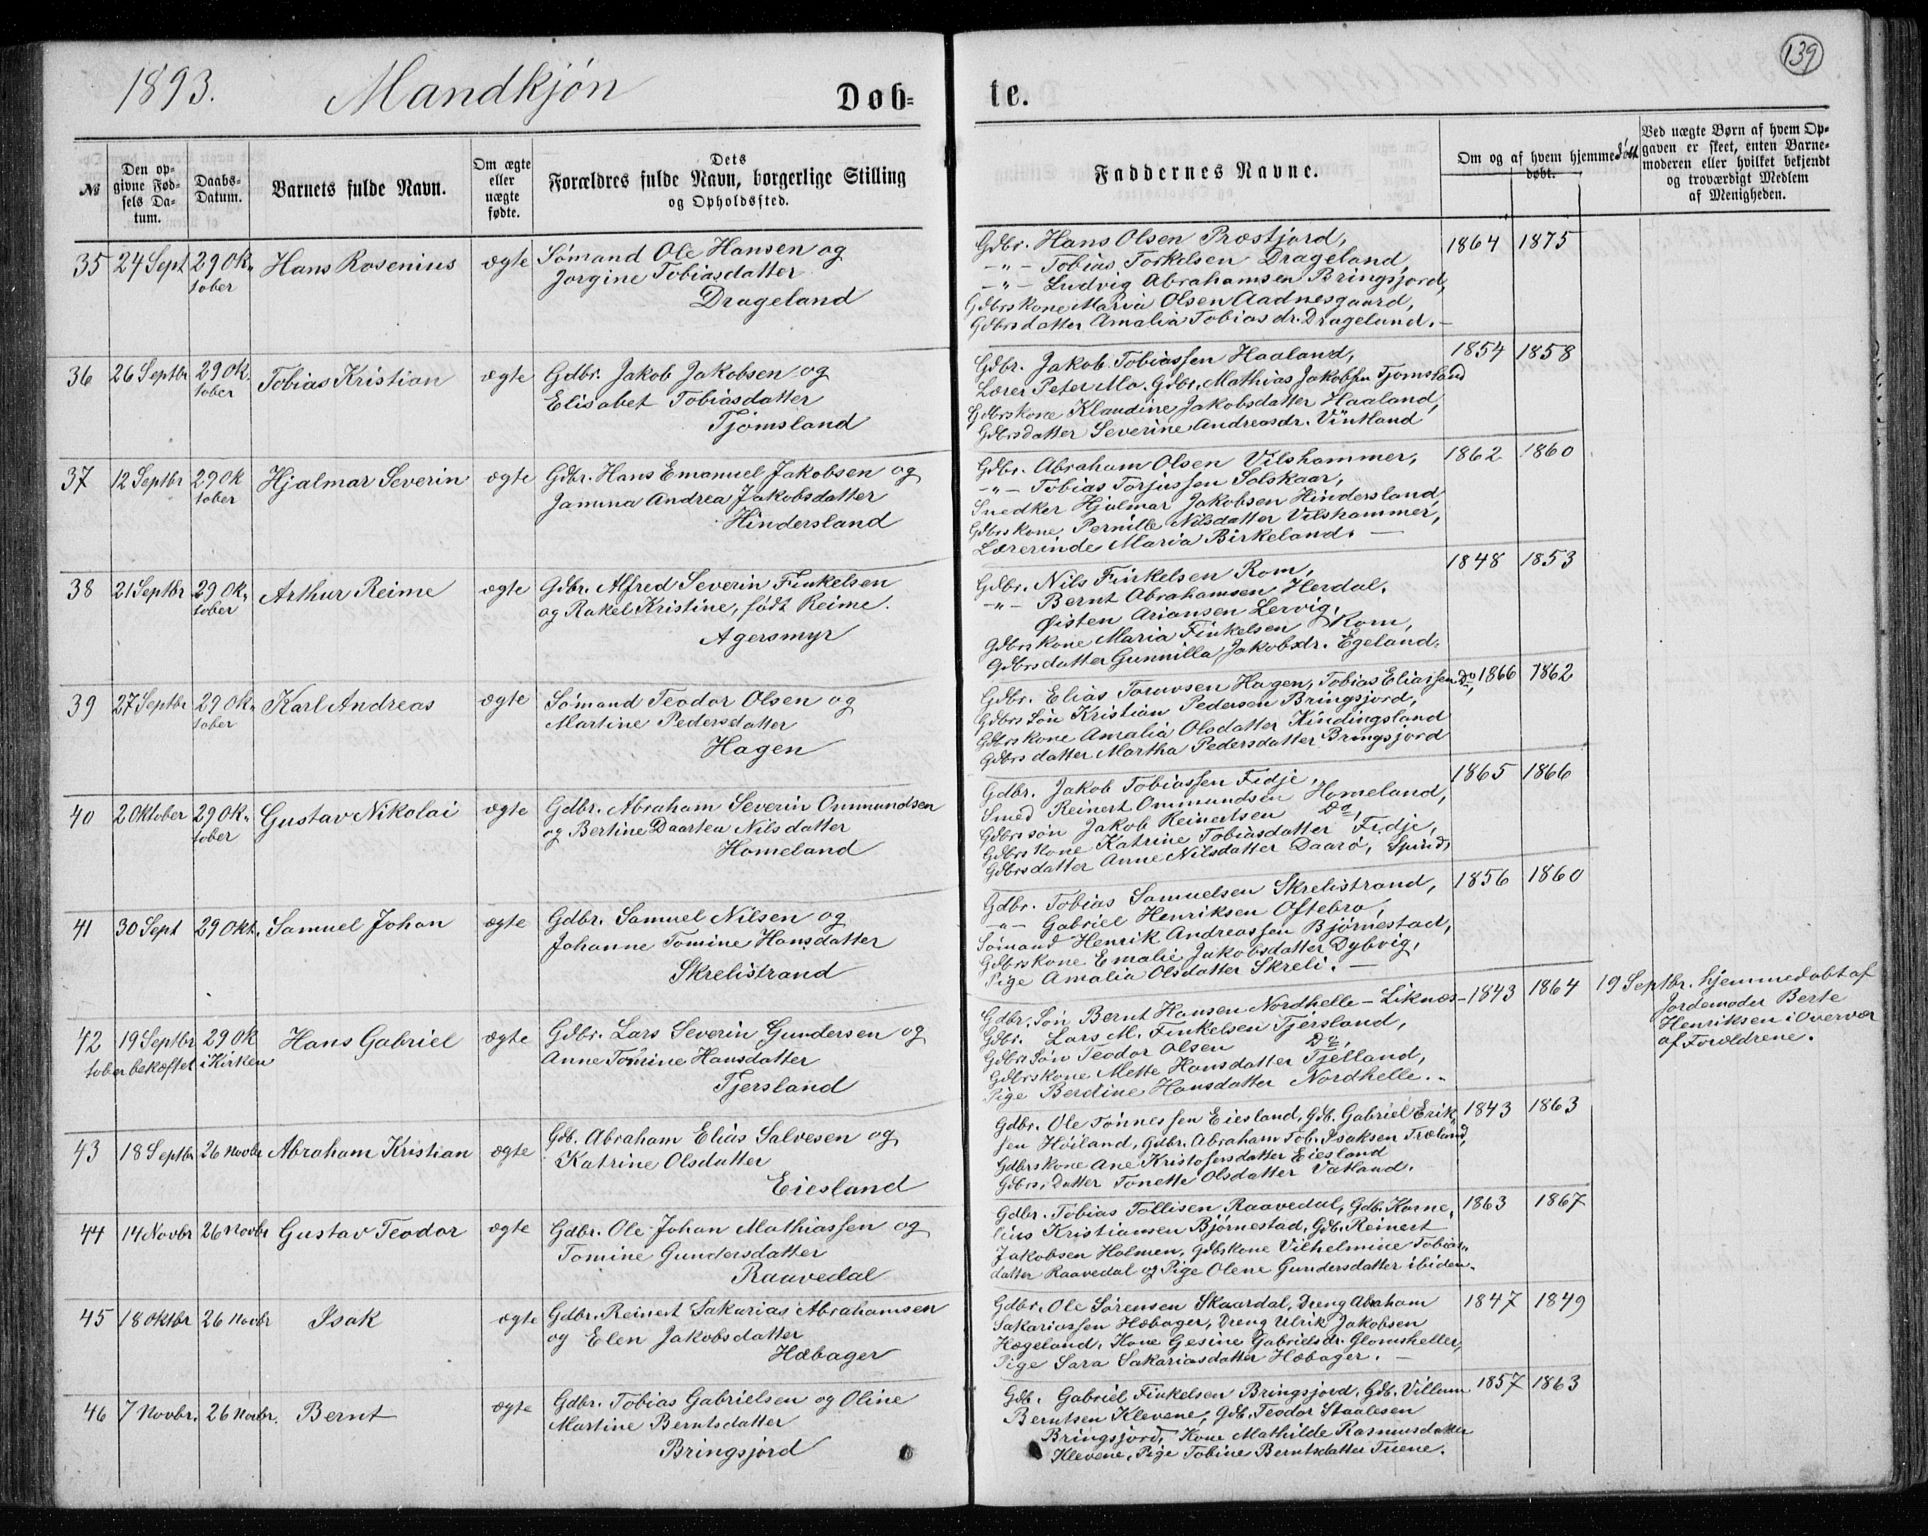 139
1893. Mandkjøn Døb=
te.
№
Den op=
givne Fød=
sels Da=
tum.
Daabs=
Datum.
Barnets fulde Navn.
Om ægte
eller
uægte
fødte.
Dets
Forældres fulde Navn, borgerlige Stilling
og Opholdssted.
Faddernes Navne.
Om og af hvem hjemme
døbt.
Ved uægte Børn af hvem Op=
gaven er skeet, enten Barne=
moderen eller hvilket bekjendt
og troværdigt Medlem
af Menigheden.
35 24 Sept 29 Ok=
tober
Hans Rosenius ægte
Sømand Ole Hansen og
Jorgine Tobiasdatter
Drageland
Gdbr. Hans Olsen Præstjord,
-"- Tobias Torkelsen Drageland,
-"- Ludvig Abrahamsen Bringsjord,
Gdbrskone Maria Olsen Aadnesgaard,
Gdbrsdatter Amalia Tobiasdr. Drageland.-
1864 1875
36 26 Septbr 29 Ok.
tober
Tobias Kristian ægte
Gdbr. Jakob Jakobsen og
Elisabet Tobiasdatter
Tjomsland
Gdbr. Jakob Tobiassen Haaland,
Lærer Peter Mo. Gdbr. Mathias Jakobsen Tjomsland
Gdbrskone Klaudine Jakobsdatter Haaland,
Gdbrsdatter Severine Andreasdr. Vintland
1854 1858
37 12 Septbr 29 Ok
tober
Hjalmar Severin ægte
Gdbr. Hans Emanuel Jakobsen og
Jamina Andrea Jakobsdatter
Hindersland
Gdbr. Abraham Olsen Vilshammer,
-"- Tobias Torjussen Solskaar,
Snedker Hjalmar Jakobsen Hindersland,
Gdbrskone Pernille Nilsdatter Vilshammer,
Lærerinde Maria Birkeland. -
1862 1860
38 21 Septbr 29 Ok.
tober
Arthur Reime ægte
Gdbr. Alfred Severin Finkelsen
og Rakel Kristine, født Reime.
Agersmyr
Gdbr. Nils Finkelsen Rom,
-"- Bernt Abrahamsen Herdal.
Øisten Ariansen Lervig,
Gdbrskone Maria Finkelsen Rom,
Gdbrsdatter Gunnilla Jakobsdr. Egeland.
1848 1853
39 27 Septbr 29 Ok.
tober
Karl Andreas ægte
Sømand Teodor Olsen og
Martine Pedersdatter
Hagen
Gdbr. Elias Hagen, Tobias Eliassen Do
Gdbrs Søn Kristian Pedersen Bringsjord,
Gdbrskone Amalia Olsdatter Kindingsland
Gdbrsdatter Martha Pedersdatter Bringsjord
1866 1862
40 2 Oktober 29 Ok.
tober
Gustav Nikolai ægte
Gdbr. Abraham Severin Ommundsen
og Bertine Daartea Nilsdatter
Homeland
Gdbr. Jakob Tobiassen Fidje,
Smed Reinert Ommundsen Homeland,
Gdbrs søn Jakob Reinertsen Do,
Gdbrskone Katrine Tobiasdatter Fidje,
Gdbrsdatter Anne Nilsdatter Daarø, Spind.
1865 1866
41 30 Sept 29 Okt.
Samuel Johan ægte
Gdbr. Samuel Nilsen og
Johanne Tomine Hansdatter
Skrelistrand
Gdbr. Tobias Samuelsen Skrelistrand,
-"- Gabriel Henriksen Oftebro,
Sømand Henrik Andreassen Bjørnestad,
Gdbrskone Emalie Jakobsdatter Dybvig,
Pige Amalia Olsdatter Skreli. -
1856 1860
42 19 Septbr 29 Ok
tober bekæftet i Kirken
Hans Gabriel ægte
Gdbr. Lars Severin Gundersen og
Anne Tomine Hansdatter
Tjersland
Gdbr. Søn Bernt Hansen Nordhelle - Liknæs-
Gdbr. Lars M. Finkelsen Tjersland,
Gdbrs Søn Teodor Olsen Do,
Gdbrskone Mette Hansdatter Tjelland,
Pige Berdine Hansdatter Nordhelle.-
1843 1864
19 Septbr. hjemmedøbt af
Jordemoder Berte
Henriksen i Overvær
af Forældrene.
43 18 Septbr 26 Novbr
Abraham Kristian ægte
Gdb. Abraham Elias Salvesen og
Katrine Olsdatter
Eiesland
Gdbr. Ole Tønnessen Eiesland, Gdb. Gabriel Erik
sen Høiland, Gdbr. Abraham Tob. Isaksen Træland,
Gdbrskone Ane Kristofersdatter Eiesland
Gdbrs. Datter Tonette Olsdatter Vatland.
1843 1863
44 14 Novbr 26 Novbr
Gustav Teodor ægte
Gdbr. Ole Johan Mathiassen og
Tomine Gundersdatter
Raavedal
Gdbr. Tobias Tollisen Raavedal, Gdb. Korne,
lius Kristiansen Bjørnestad, Gdb. Reinert
Jakobsen Holmen, Gdbskone Vilhelmine Tobias,,
datter Raavedal og Pige Olene Gundersdatter ibiden.
1863 1867
45 18 Oktbr 26 Novbr
Isak ægte
Gdbr. Reinert Sakarias Abrahamsen
og Elen Jakobsdatter
Hæbager
Gdbr. Ole Sørensen Skaardal, Dreng Abraham
Sakariassen Hæbager, Dreng Ulrik Jakobsen
Hægeland, Kone Gesine Gabrielsdr. Glomsheller,
Pige Sara Sakariasdatter Hæbager. -
1847 1849
46 7 Novbr. 26 Novbr.
Bernt ægte
Gdbr. Tobias Gabrielsen og Oline
Martine Berntsdatter
Bringsjord
Gdb. Gabriel Finkelsen Bringsjord, Gdb. Villum
Berntsen Klevene, Gdb. Teodor Staalesen
Bringsjord, Kone Mathilde Rasmusdatter
Klevene, Pige Tobine Berntsdatter Tuene.
1857 1863